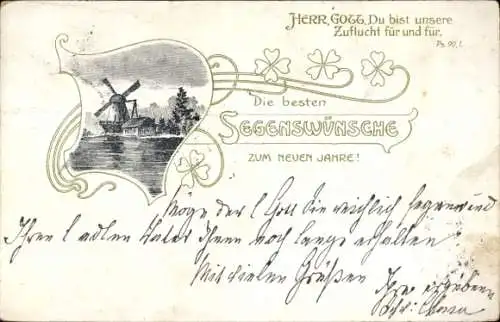 HERR, GOTT, Du bist unsere
Zuflucht für und für.
Ps. 90, 1.
Die besten
SEGENSWÜNSCHE
ZUM NEUEN JAHRE!
Möge der l. Gott Sie reichlich segnen und
Ihren l. edlen Vater Ihnen noch lange erhalten
Mit vielen Grüßen
Ihre ergebene
Schw: Clara